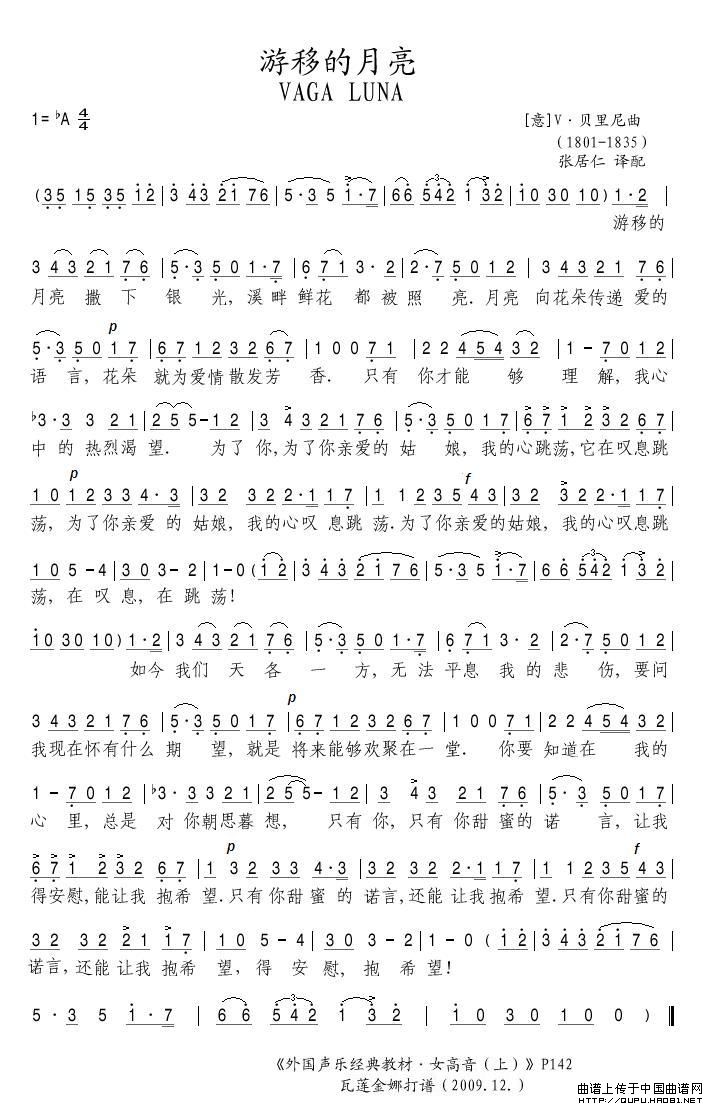 游移的月亮
VAGA LUNA
1=♭A 4/4
[意]V·贝里尼曲
(1801-1835)
张居仁 译配
(35 15 35 12 | 3 43 21 76 | 5·3 5 1·7 | 66 542 1 32 | 10 30 10) 1·2 |
游移的
3 43 21 76 | 5·3 50 1·7 | 671 3·2 | 2·7 50 12 | 3 43 21 76 |
月亮 撒 下 银 光, 溪畔 鲜花 都被照 亮. 月亮 向花朵传递 爱的
5·3 50 17 | 671232 67 | 100 71 | 22 454 32 | 1-7012 |
语言, 花朵 就为爱情散发芳 香. 只有 你才能 够 理解, 我心
♭3·3 3 21 | 255-12 | 3 432176 | 5·35017 | 671 2 32 67 |
中的 热烈渴 望. 为了 你,为了你亲爱的 姑 娘, 我的心跳荡,它在叹息跳
10 12 33 4·3 | 32 32 2·1 17 | 1 12 35 43 | 32 32 21 17 |
荡, 为了你亲爱 的 姑娘, 我的心叹 息跳 荡.为了你亲爱的姑娘, 我的心叹息跳
10 5-4 | 30 3-2 | 1-0(12 | 3432176 | 5·35 1·7 | 66 542 132 |
荡, 在 叹 息, 在 跳 荡!
10 30 10) 1·2 | 3 432176 | 5·3501·7 | 671 3·2 | 2·75012 |
如今 我们 天 各 一 方, 无法 平息 我 的 悲 伤, 要问
3 432176 | 5·35017 | 67123267 | 10071 | 2245432 |
我现在怀有什么 期 望, 就是 将来能够欢聚在一 堂. 你要 知道在 我的
1-7012 | ♭3·3 3321 | 255-12 | 3 4321 76 | 5·35017 |
心 里, 总是 对 你朝思暮 想, 只有 你,只有 你甜蜜的 诺 言, 让我
671 2 32 67 | 1 32 33 4·3 | 32 32 2·1 17 | 1 12 35 43 |
得安慰,能让我 抱希 望.只有你甜 蜜 的 诺言,还能 让我 抱希 望.只有你甜蜜的
32 32 21 17 | 10 5-4 | 30 3-2 | 1-0 (12 | 3 43 21 76 |
诺言,还能 让我 抱希 望, 得 安 慰, 抱 希 望!
5·3 5 1·7 | 66 542 1 32 | 10 30 10 0) ‖
《外国声乐经典教材·女高音(上)》P142
瓦莲金娜打谱(2009.12.)
曲谱上传于中国曲谱网
HTTP://QUPU.HAO81.NET